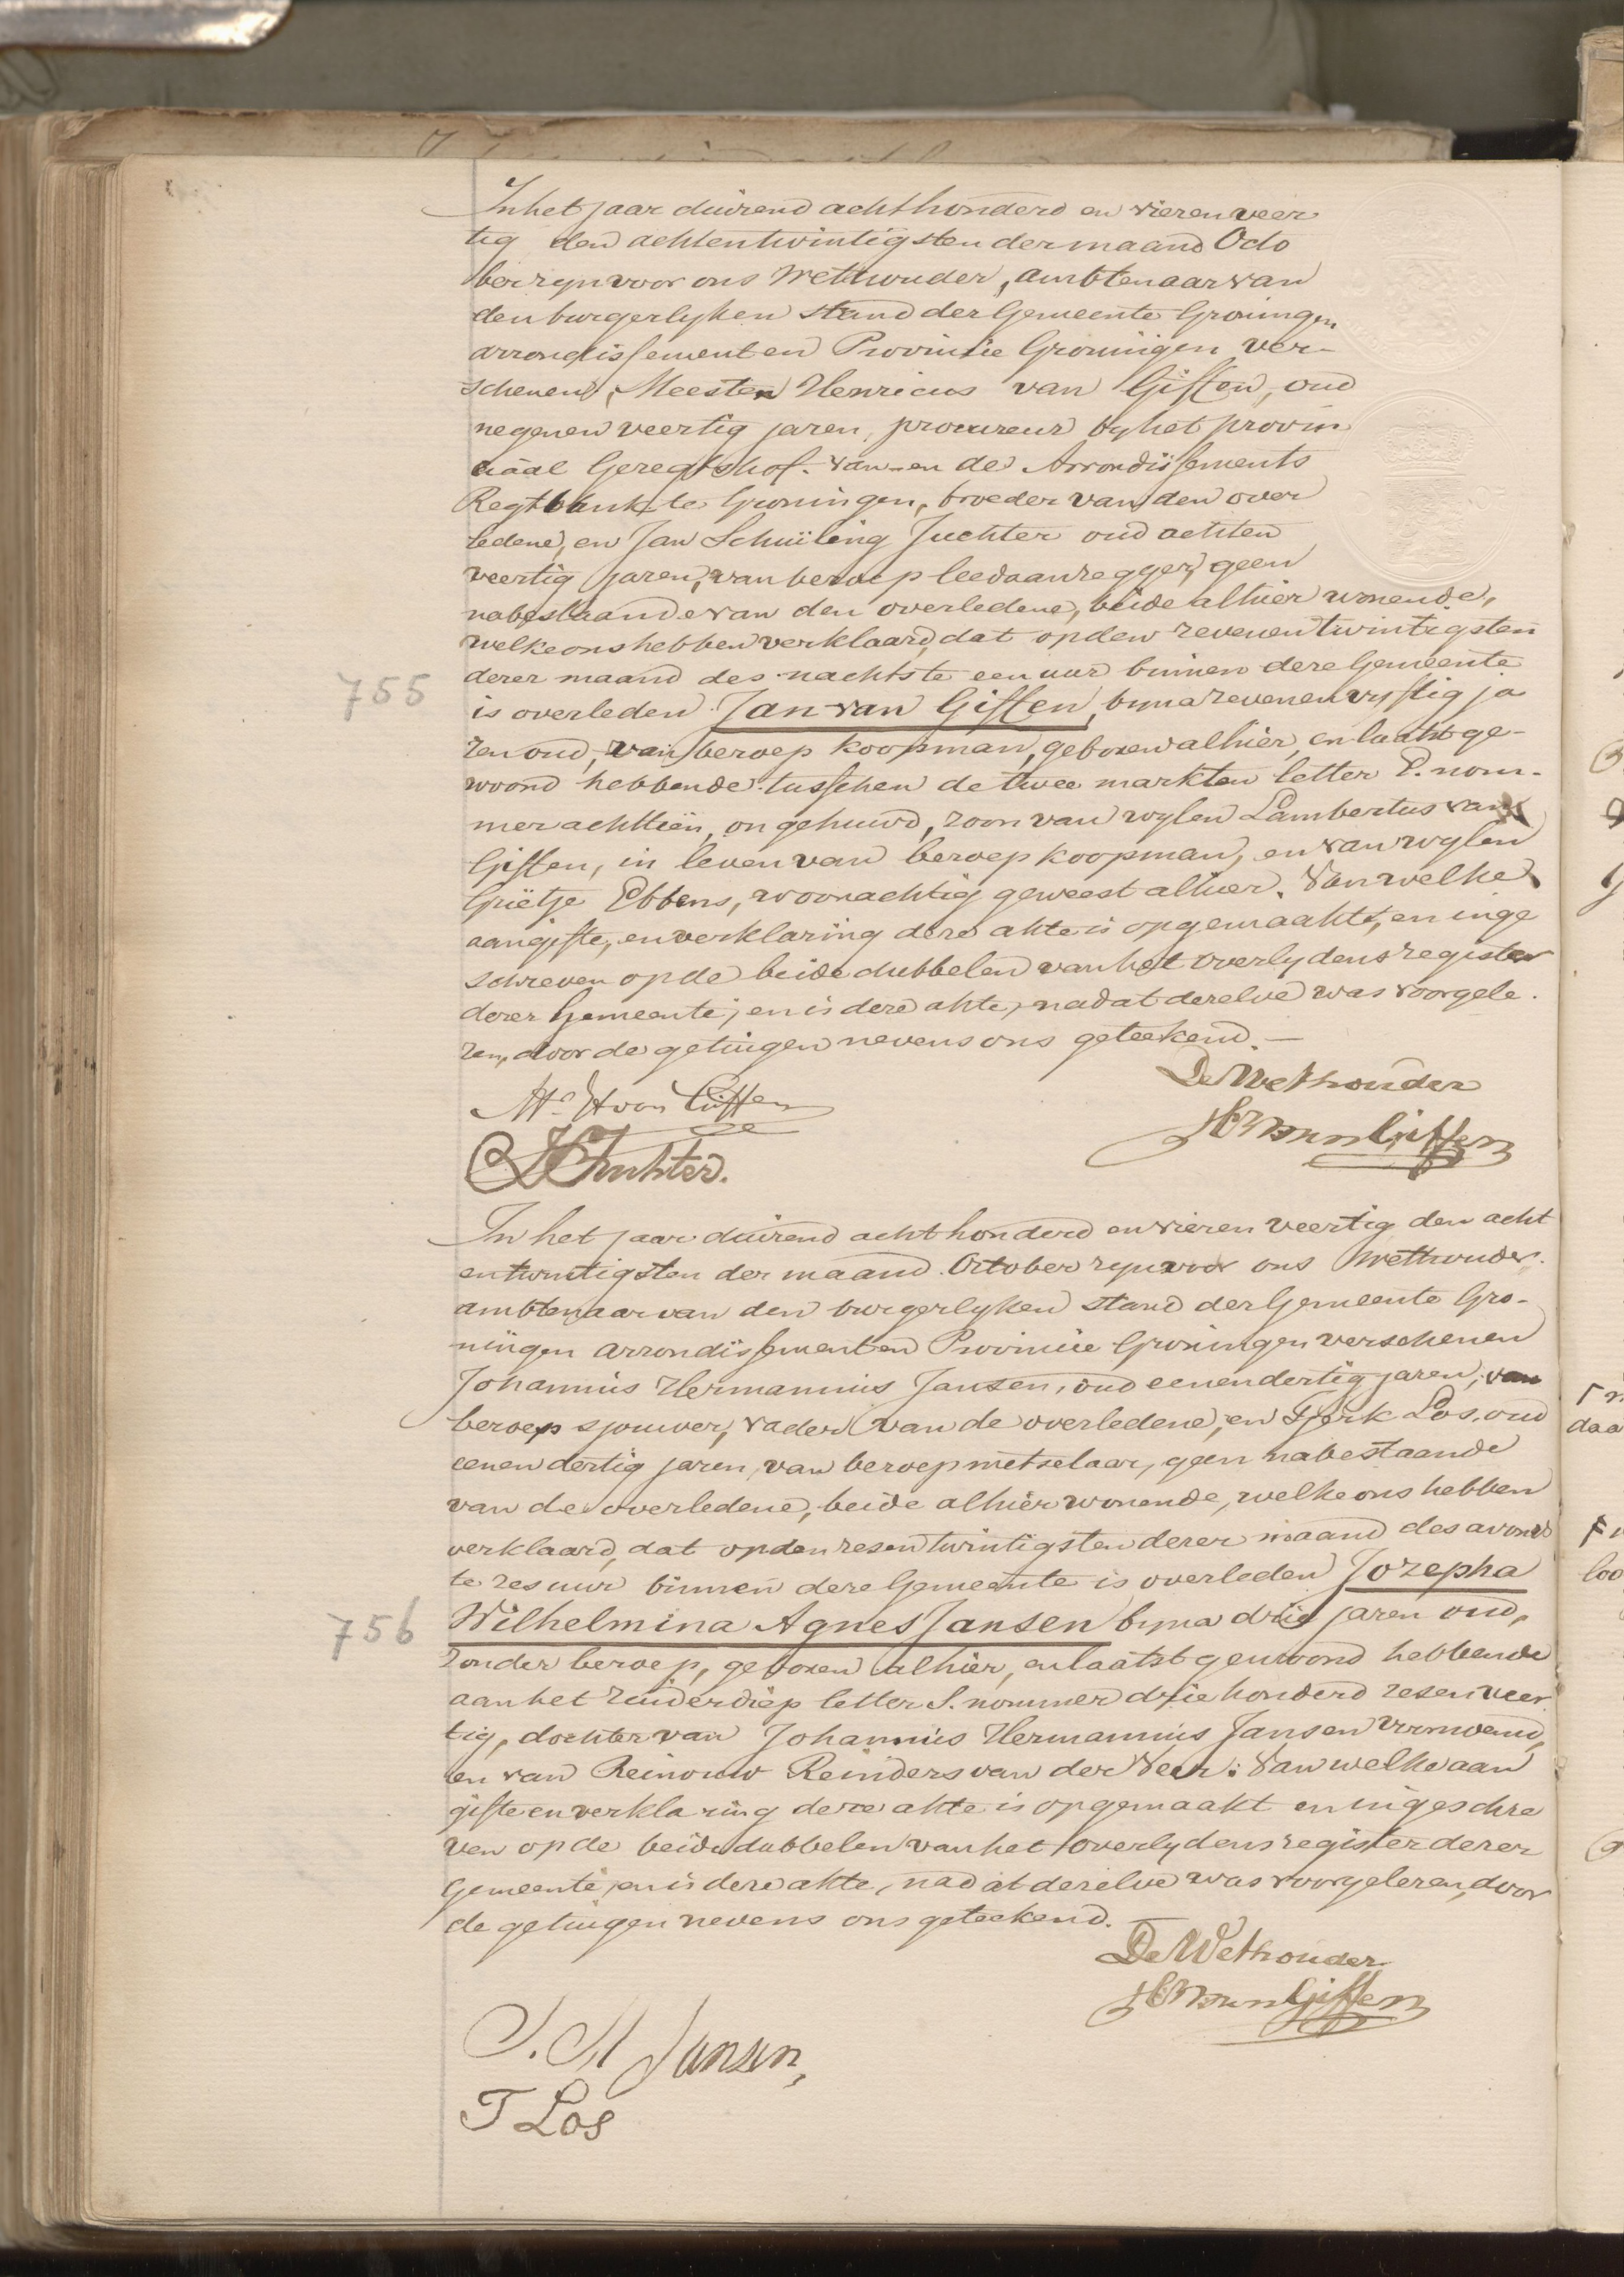 In het jaar duizend achthonderd en vieren veer
tig den achtentwintigsten der maand Octo
ber zyn voor ons Wethouder, ambtenaar van
den burgerlyken stand der Gemeente Groningen
arrondissement en Provincie Groningen ver-
schenen, Meester Henricus van Giffen, oud
negenen veertig jaren, procureur by het provin
ciaal Geregtshof. van en de Arrondissements
Regtbank te Groningen, broeder van den over
ledene, en Jan Schuiling Juchter oud achten
veertig jaren, van beroep leedaanzegger, geen
nabestaande van den overledene, beide alhier wonende,
welke ons hebben verklaard, dat op den zevenen twintigsten
dezer maand des nachts te een uur binnen deze Gemeente
755
is overleden Jan van Giffen, byna zevenen vyftig ja
ren oud, van beroep koopman, geboren alhier, en laatst ge-
woond hebbende tusschen de twee markten letter E. nom-
mer achttien, ongehuwd, zoon van wylen Lambertus van
Giffen, in leven van beroep koopman, en van wylen
Grietje Ebbens, woonachtig geweest alhier. Van welke
aangifte, en verklaring deze akte is opgemaakt, en inge
schreven op de beide dubbelen van het overlydens register
dezer Gemeente; en is deze akte, nadat dezelve was voorgele-
zen, door de getuigen nevens ons geteekend.—
De Wethouder
Mr. H van Giffen
van Giffen
JS Juchter.
In het jaar duizend achthonderd en vieren veertig den acht
entwintigsten der maand October zyn voor ons Wethouder
ambtenaar van den burgerlyken stand der Gemeente Gro-
ningen arrondissement en Provincie Groningen verschenen
Johannis Hermannus Jansen, oud eenendertig jaren, van
beroep sjouwer, vader van de overledene, en Tjerk Los, oud
eenen dertig jaren, van beroep metselaar, geen nabestaande
van de overledene, beide alhier wonende, welke ons hebben
verklaard, dat op den zesen twintigsten dezer maand des avonds
te zes uur binnen deze Gemeente is overleden Jozepha
756
Wilhelmina Agnes Jansen byna drie jaren oud,
zonder beroep, geboren alhier, en laatst gewoond hebbende
aan het Zuiderdiep letter S. nommer drie honderd zesen veer
tig, dochter van Johannis Hermannus Jansen voornoemd,
en van Reinouw Reinders van der Veer: Van welke aan
gifte en verklaring deze akte is opgemaakt en ingeschre
ven op de beide dubbelen van het overlydens register dezer
Gemeente, en is deze akte, nadat dezelve was voorgelezen, door
de getuigen nevens ons geteekend.
De Wethouder
van Giffen
J. H Jansen,
T Los